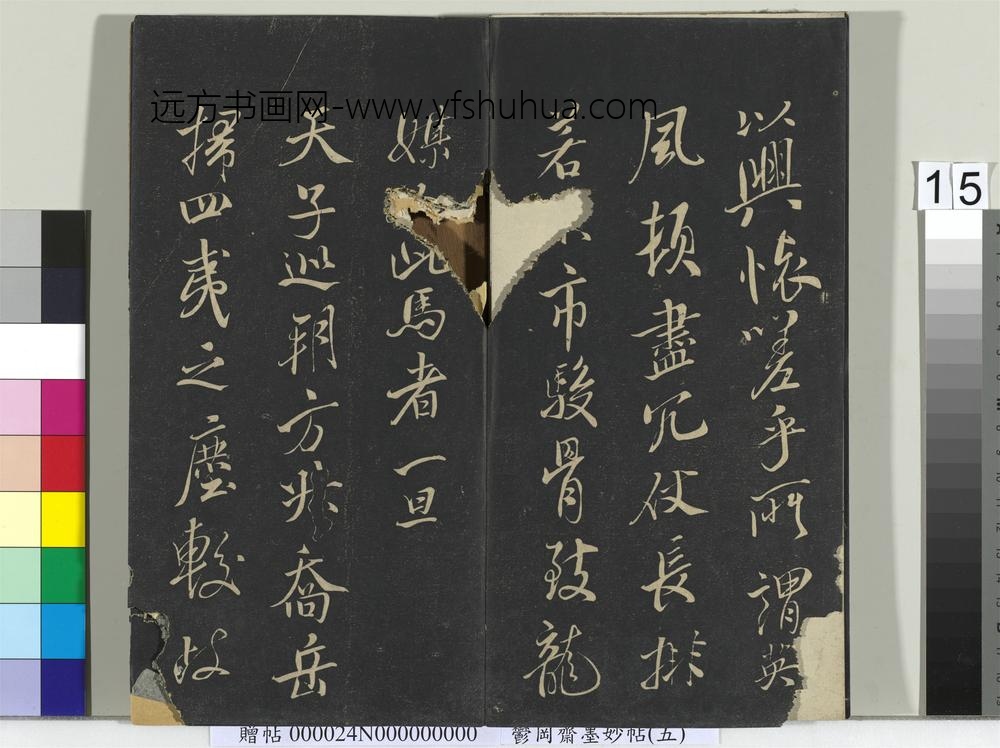 远方书画网-www.yfshuhua.com
以興懷嗟乎所謂英
風頓盡冗仗長排
若市駿骨致龍
媒此馬者一旦
天子巡朔方喬岳
掃四夷之塵較岐
15
贈帖 000024N000000000 鬱岡齋墨妙帖(五)